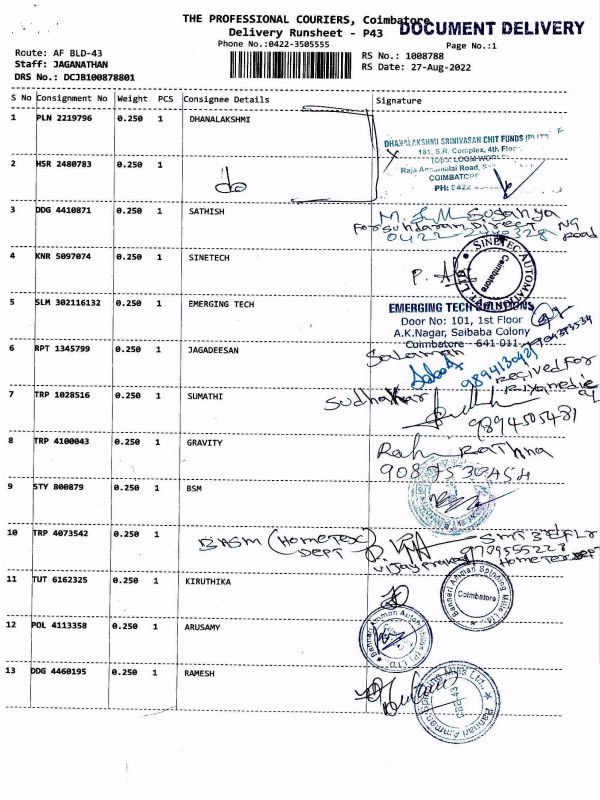 THE PROFESSIONAL COURIERS, Coimbatore
DOCUMENT DELIVERY
Delivery Runsheet - P43
Phone No.:0422-3505555
Page No.:1
Route: AF BLD-43
Staff: JAGANATHAN
DRS No.: DCJB100878801
RS No.: 1008788
RS Date: 27-Aug-2022
S No Consignment No Weight PCS Consignee Details Signature
1 PLN 2219796 0.250 1 DHANALAKSHMI
DHANALAKSHMI SRINIVASAN CHIT FUNDS (P) LTD
181, S.R. Complex, 4th Floor
Raja Annamalai Road,
COIMBATORE
PH: 0422
2 HSR 2480783 0.250 1 do
3 DDG 4410871 0.250 1 SATHISH
For Sundaram Direct NG
Road
4 KNR 5097074 0.250 1 SINETECH
SINETEC AUTOMATION
Coimbatore
5 SLM 302116132 0.250 1 EMERGING TECH
EMERGING TECH SOLUTIONS
Door No: 101, 1st Floor
A.K.Nagar, Saibaba Colony
Coimbatore - 641 011
6 RPT 1345799 0.250 1 JAGADEESAN
Salaman
9894130421
Recived For
7 TRP 1028516 0.250 1 SUMATHI
Sudhakar
9894505481
8 TRP 4100043 0.250 1 GRAVITY
Rathna
9 STY 800879 0.250 1 BSM
10 TRP 4073542 0.250 1 BASM (HomeTex)
DEPT
Vijay Prakash
HomeTex DEPT
11 TUT 6162325 0.250 1 KIRUTHIKA
Bannari Amman Spinning Mills
Coimbatore
12 POL 4113358 0.250 1 ARUSAMY
Bannari Amman
13 DDG 4460195 0.250 1 RAMESH
Bannari Amman Spinning Mills Ltd.